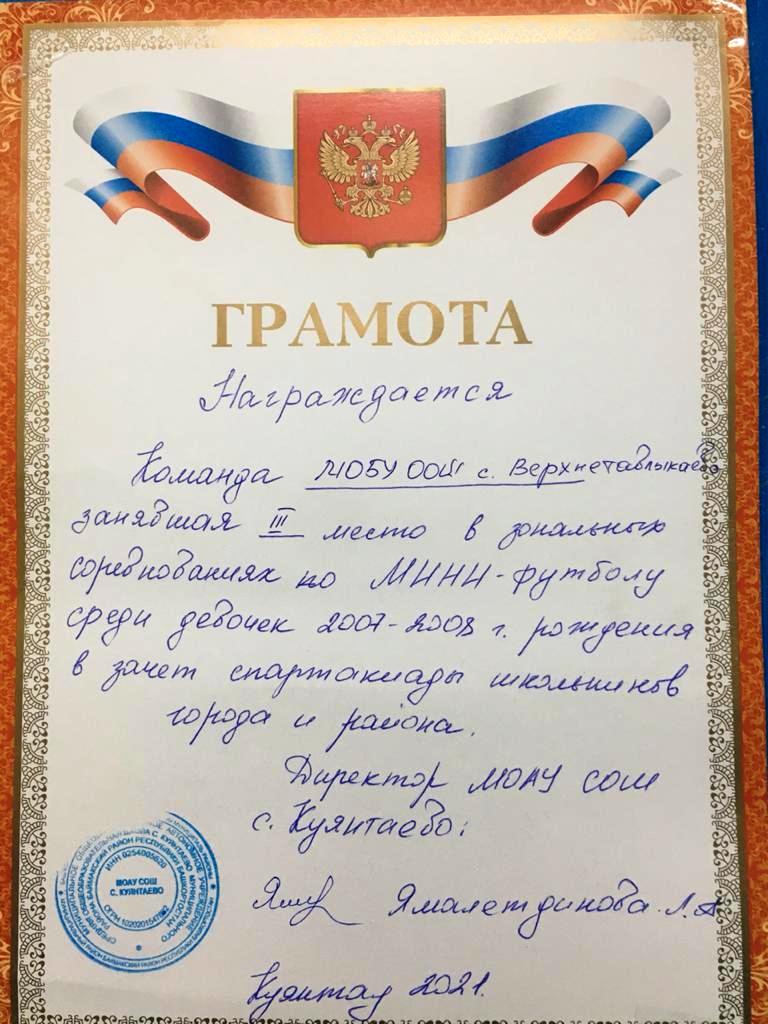 ГРАМОТА
Награждается
Команда МОБУ ООШ с. Верхнетавлыкаево
занявшая III место в зональных
соревнованиях по МИНИ-футболу
среди девочек 2007-2008 г. рождения
в зачет спартакиады школьников
города и района.
Директор МОАУ СОШ
с. Куянтаево:
Ямалетдинова Л.А
Куянтау 2021.
ИНН 0254005620
МОАУ СОШ
С. КУЯНТАЕВО